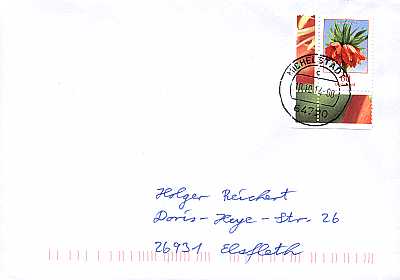 MICHELSTADT 1
c
64720
Holger Reichert
Doris-Heye-Str. 26
26931 Elsfleth